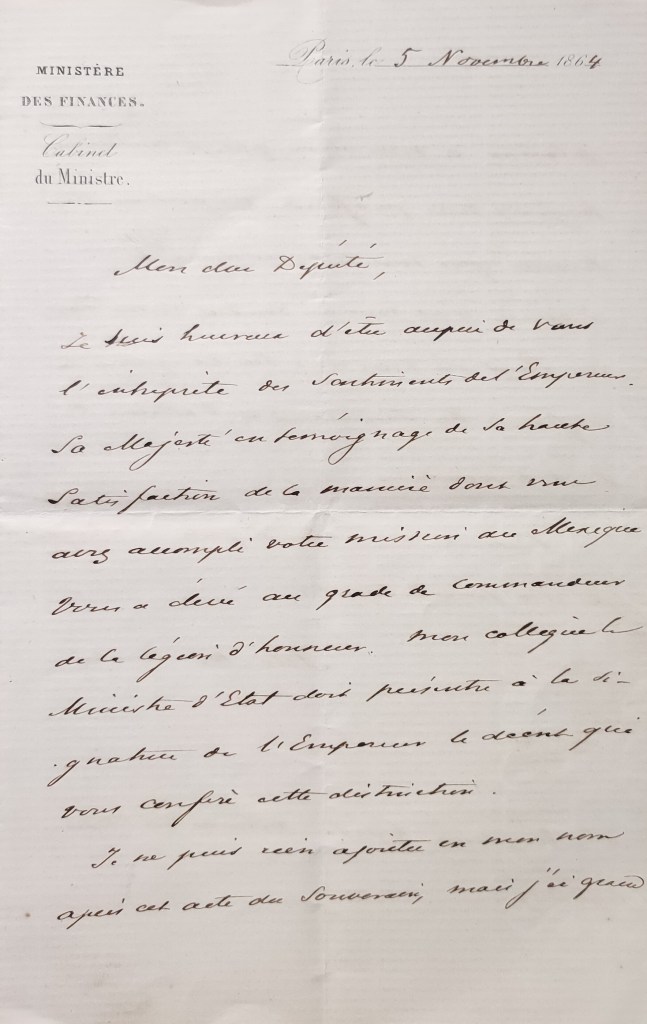 MINISTÈRE
DES FINANCES.
Cabinet
du Ministre.
Paris, le 5 Novembre 1864
Mon cher Député,
Je suis heureux d'être auprès de vous
l'interprète des sentiments de l'Empereur.
Sa Majesté en témoignage de sa haute
satisfaction de la manière dont vous
avez accompli votre mission au Mexique
vous a élevé au grade de Commandeur
de la légion d'honneur. Mon collègue le
Ministre d'Etat doit présenter à la si-
gnature de l'Empereur le décret qui
vous confère cette distinction.
Je ne puis rien ajouter en mon nom
après cet acte du Souverain, mais j'ai grand